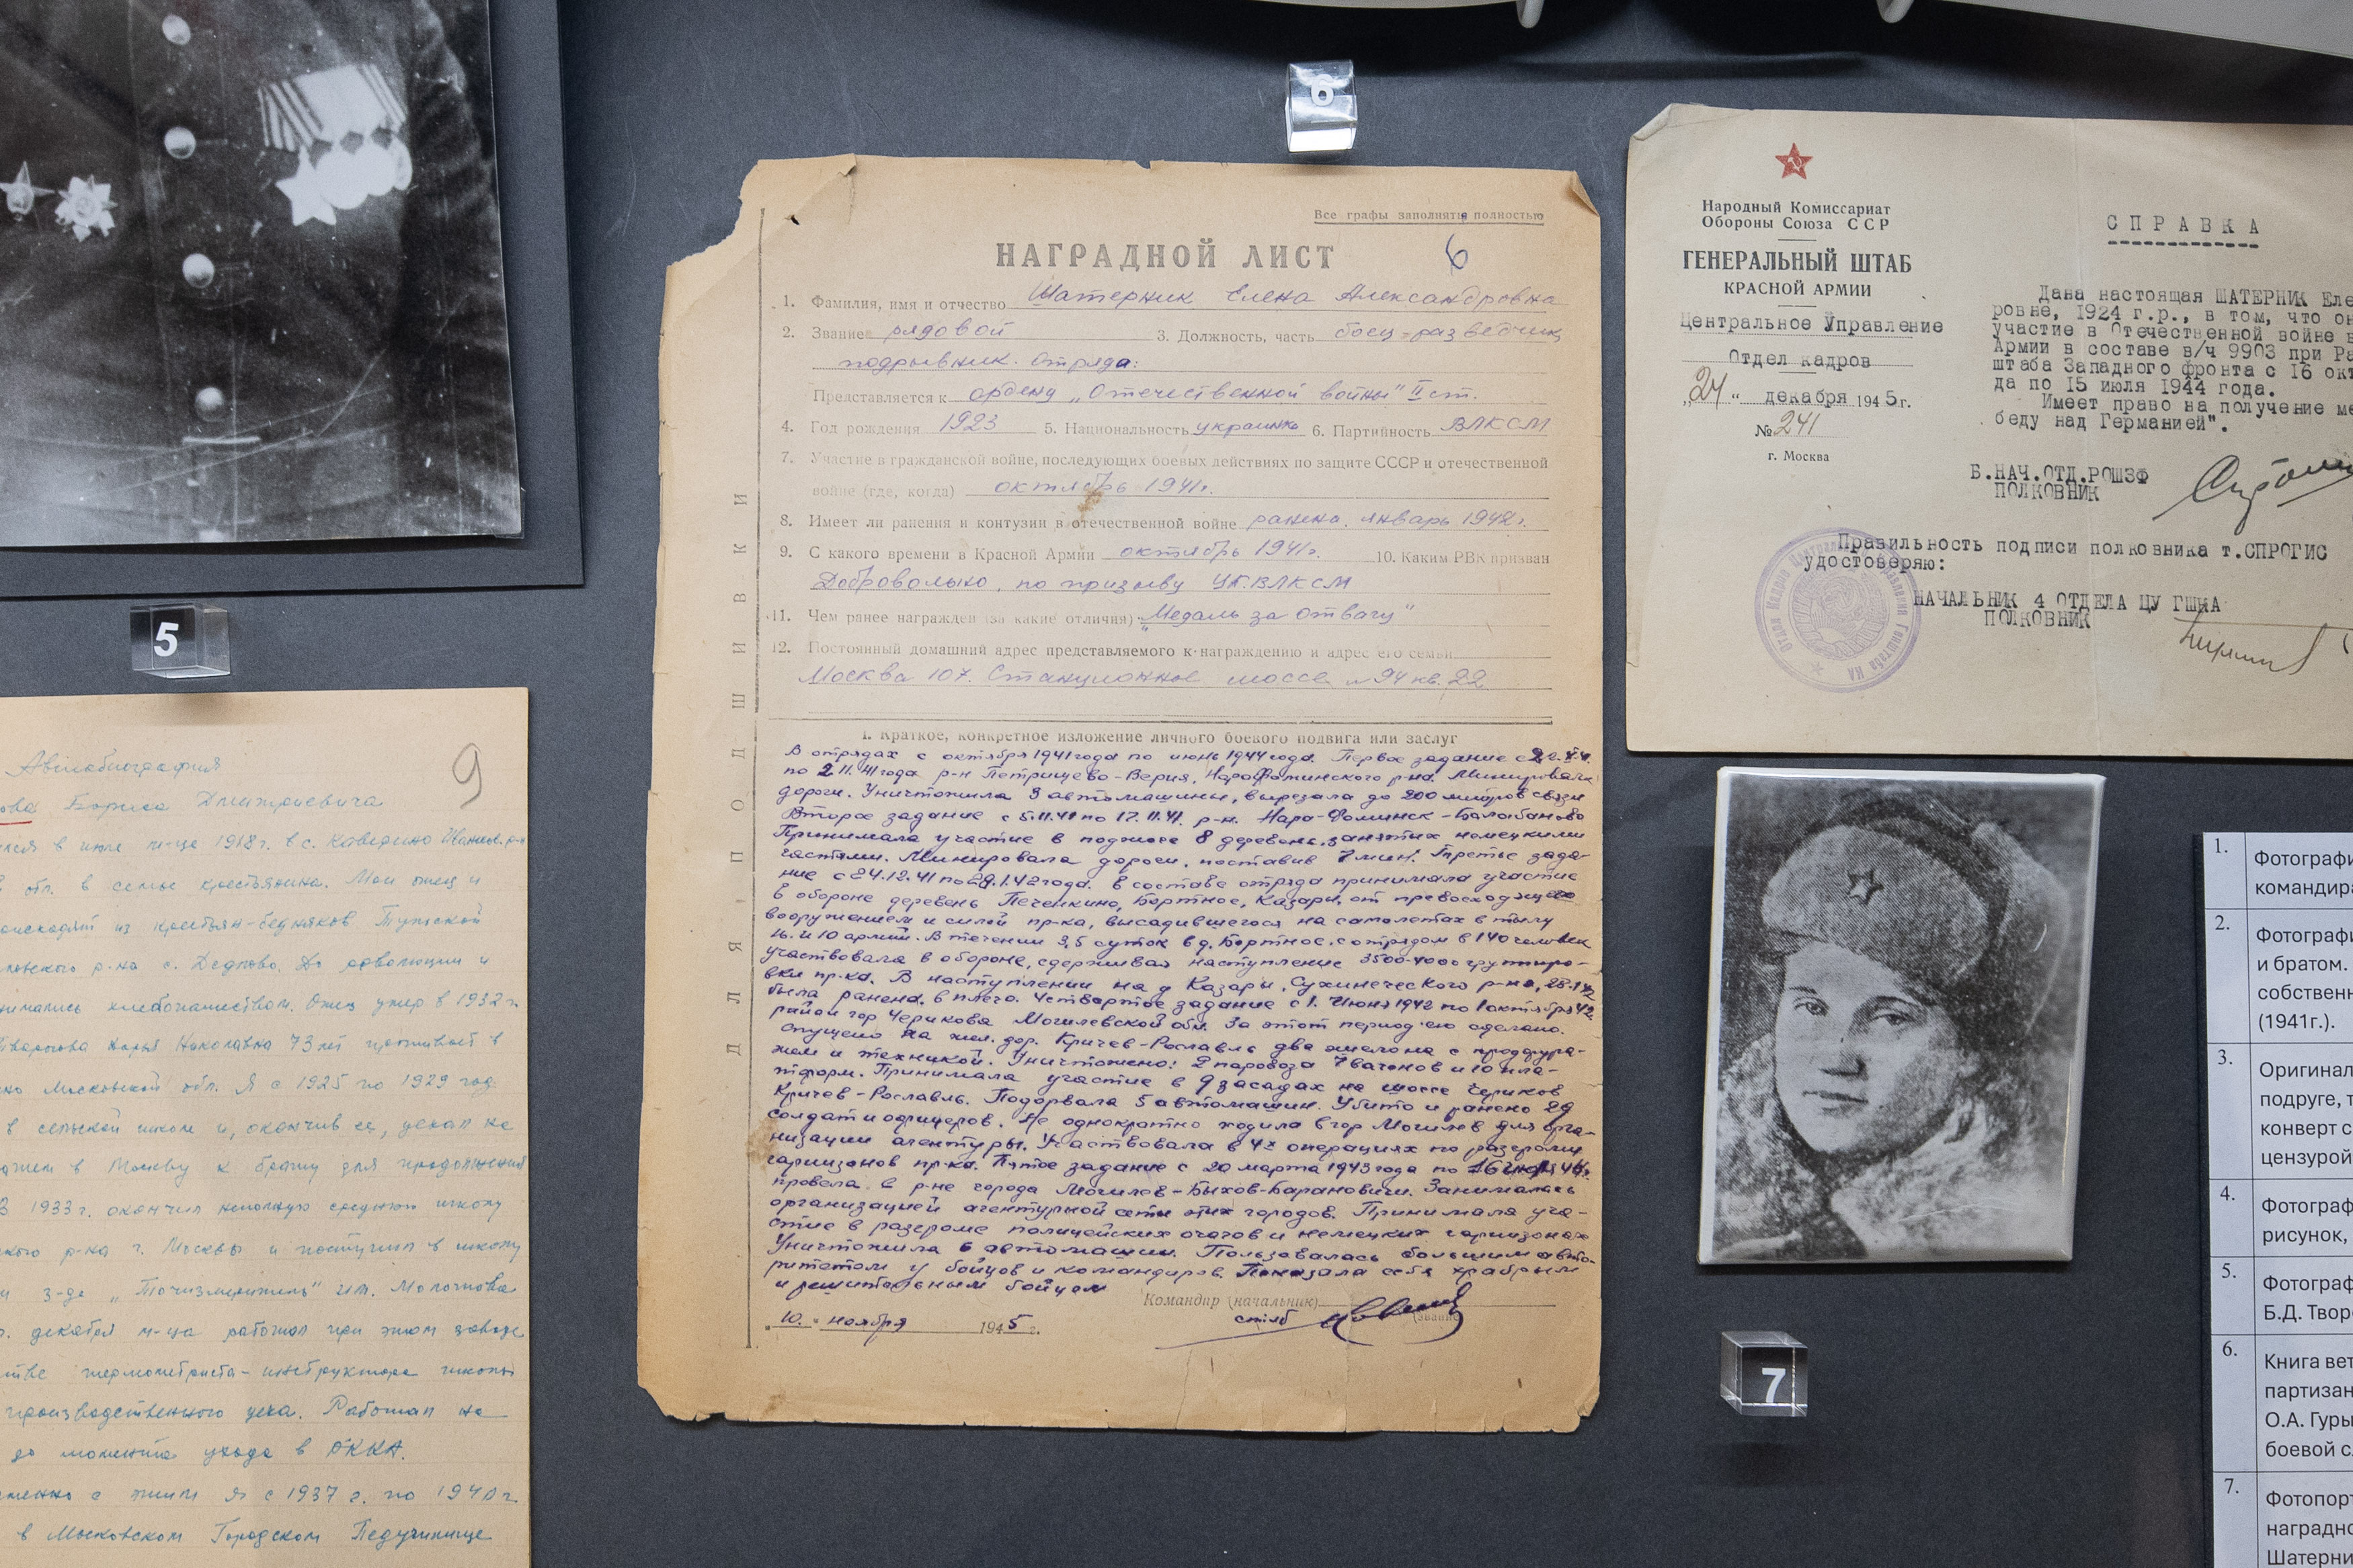 6
5
Все графы заполнять полностью
НАГРАДНОЙ ЛИСТ
6
1. Фамилия, имя и отчество Шатерник Елена Александровна
2. Звание рядовой 3. Должность, часть боец-разведчик
подрывник. Отряда:
Представляется к ордену „Отечественной войны" II ст.
4. Год рождения 1923 5. Национальность украинка 6. Партийность ВЛКСМ
7. Участие в гражданской войне, последующих боевых действиях по защите СССР и отечественной
войне (где, когда) октябрь 1941г.
8. Имеет ли ранения и контузии в отечественной войне ранена. январь 1942г.
9. С какого времени в Красной Армии октябрь 1941г. 10. Каким РВК призван
Добровольно, по призыву ЦК.ВЛКСМ
11. Чем ранее награжден (за какие отличия) „Медаль за Отвагу"
12. Постоянный домашний адрес представляемого к награждению и адрес его семьи
Москва 107. Станционное шоссе № 94 кв. 22
ДЛЯ ПОДШИВКИ
I. Краткое, конкретное изложение личного боевого подвига или заслуг
В отрядах с октября 1941 года по июнь 1944 года. Первое задание с
по 2 11.41 года р-н Петрищево-Верия, Нарофоминского р-на. Минировала
дороги. Уничтожила 3 автомашины, вырезала до 200 метров связи
Второе задание с 5.11.41 по 17.11.41. р-н. Нара-Фоминск-Балабаново
Принимала участие в поджоге 8 деревень, занятых немецкими
частями. Минировала дороги, поставив 7 мин. Третье зада-
ние с 24.12.41 по 29.1.42 года. в составе отряда принимала участие
в обороне деревень Печенкино, Бортное, Казари, от превосходящего
вооружением и силой пр-ка, высадившегося на самолетах в тылу
и 10 армий. В течении 3,5 суток в д. Бортное, с отрядом в 140 человек
участвовала в обороне, сдерживая наступление 3500-4000 группиро-
вки пр-ка. В наступлении на д Казари, Сухинеческого р-на, 28.1.42
была ранена. в плечо. Четвертое задание с 1. Июня 1942 по 1 октября 42
район гор Черикова Могилевской обл. За этот период ею сделано.
Опущено на жел. дор. Кричев-Рославль два эшелона с продфура-
жем и техникой. Уничтожено: 2 паровоза 7 вагонов и 10 пла-
тформ. Принимала участие в 9 засадах на шоссе Чериков
Кричев-Рославль. Подорвала 5 автомашин. Убито и ранено 29
солдат и офицеров. Не однократно ходила в гор Могилев для орга-
низации агентуры. Участвовала в 4х операциях по разгрому
гарнизонов пр-ка. Пятое задание с 20 марта 1943 года по 16 44г.
провела в р-не города Могилев-Быхов-Барановичи. Занималась
организацией агентурной сети этих городов. Принимала уча-
стие в разгроме полицейских очагов и немецких гарнизонах
Уничтожила 6 автомашин. Пользовалась большим авто-
ритетом у бойцов и командиров. Показала себя храбрым
и решительным бойцом
Командир (начальник)
„10." ноября 1945 г.
(звание)
Народный Комиссариат
Обороны Союза ССР
ГЕНЕРАЛЬНЫЙ ШТАБ
КРАСНОЙ АРМИИ
Центральное Управление
Отдел кадров
„24" декабря 1945г.
№ 241
г. Москва
СПРАВКА
Дана настоящая ШАТЕРНИК Еле
ровне, 1924 г.р., в том, что он
участие в Отечественной войне в
Армии в составе в/ч 9903 при Ра
штаба Западного фронта с 16 окт
да по 15 июля 1944 года.
Имеет право на получение ме
беду над Германией".
Б.НАЧ.ОТД.РОШЗФ
ПОЛКОВНИК
Правильность подписи полковника т.СПРОГИС
удостоверяю:
НАЧАЛЬНИК 4 ОТДЕЛА ЦУ ГШКА
ПОЛКОВНИК
9
Автобиография
ова Бориса Дмитриевича
1918г. в с. Каверино
обл. в семье крестьянина. Мои отец и
из крестьян-бедняков Тульской
р-на с. Дедлово. До революции и
хлебопашеством. Отец умер в 1932 г.
Дарья Николавна 73 лет проживает в
Московской обл. Я с 1925 по 1929 год
в сельской школе и, окончив ее, уехал
в Москву к брату для продолжения
В 1933 г. окончил неполную среднюю школу
р-на г. Москвы и поступил в школу
з-де „Точизмеритель" им. Молотова
декабря м-ца работал при этом заводе
термометриста-инструктора школы
производственного цеха. Работал на
до момента ухода в РККА.
с этим я с 1937 г. по 1940 г.
в Московском Городском Педучилище
7
1. Фотографи
командира
2. Фотографи
и братом.
собственн
(1941г.).
3. Оригинал
подруге, т
конверт с
цензурой
4. Фотограф
рисунок,
5. Фотограф
Б.Д. Твор
6. Книга вет
партизан
О.А. Гуры
боевой сл
7. Фотопорт
наградно
Шатерни